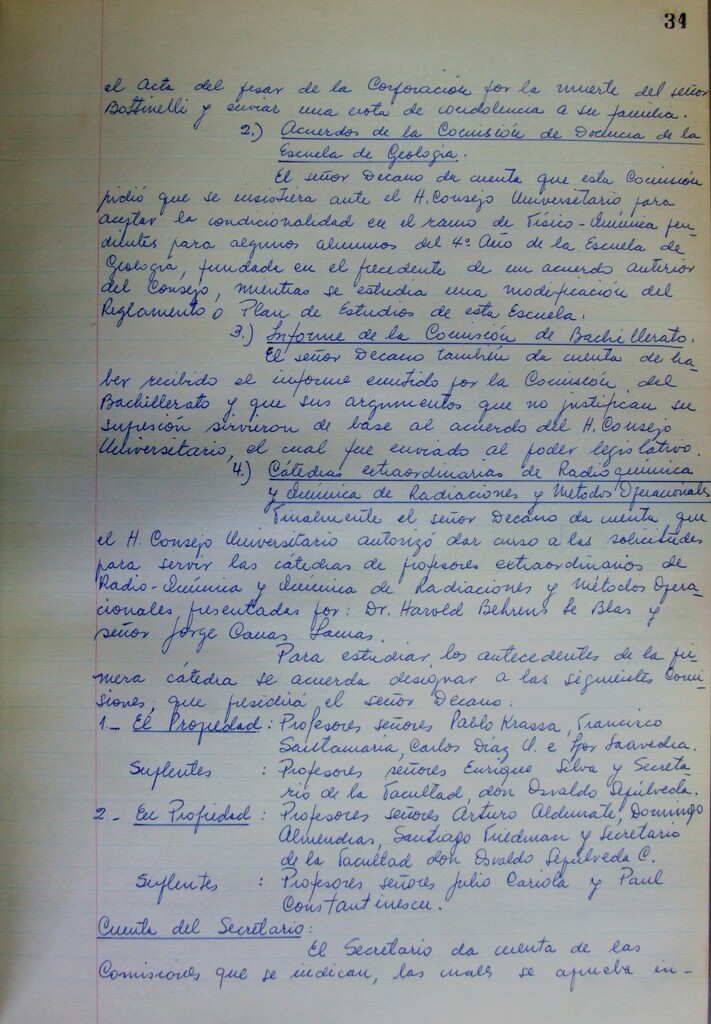 34
el Acta del pesar de la Corporación por la muerte del señor
Bottinelli y enviar una nota de condolencia a su familia.
2.) Acuerdos de la Comisión de Docencia de la
Escuela de Geología.
El señor Decano da cuenta que esta Comisión
pidió que se insistiera ante el H. Consejo Universitario para
aceptar la condicionalidad en el ramo de Físico-Química pen-
dientes para algunos alumnos del 4º Año de la Escuela de
Geología, fundada en el precedente de un acuerdo anterior
del Consejo, mientras se estudia una modificación del
Reglamento o Plan de Estudios de esta Escuela.
3.) Informe de la Comisión de Bachillerato.
El señor Decano también da cuenta de ha-
ber recibido el informe emitido por la Comisión del
Bachillerato y que sus argumentos que no justifican su
supresión sirvieron de base al acuerdo del H. Consejo
Universitario, el cual fue enviado al poder legislativo.
4.) Cátedras extraordinarias de Radioquímica
y Química de Radiaciones y Métodos Operacionales
Finalmente el señor Decano da cuenta que
el H. Consejo Universitario autorizó dar curso a las solicitudes
para servir las cátedras de profesores extraordinarios de
Radio-Química y Química de Radiaciones y Métodos Opera-
cionales presentadas por: Dr. Harold Behrens Le Blas y
señor Jorge Canas Lamas.
Para estudiar los antecedentes de la pri-
mera cátedra se acuerda designar a las siguientes Comi-
siones, que presidirá el señor Decano:
1.- El Propiedad: Profesores señores Pablo Krassa, Francisco
Santamaría, Carlos Díaz U. e Igor Saavedra.
Suplentes : Profesores señores Enrique Silva y Secreta-
rio de la Facultad, don Osvaldo Sepúlveda.
2.- En Propiedad : Profesores señores Arturo Aldunate, Domingo
Almendras, Santiago Friedman y Secretario
de la Facultad don Osvaldo Sepúlveda C.
Suplentes : Profesores señores Julio Cariola y Paul
Constantinescu.
Cuenta del Secretario:
El Secretario da cuenta de las
Comisiones que se indican, las cuales se aprueba in-